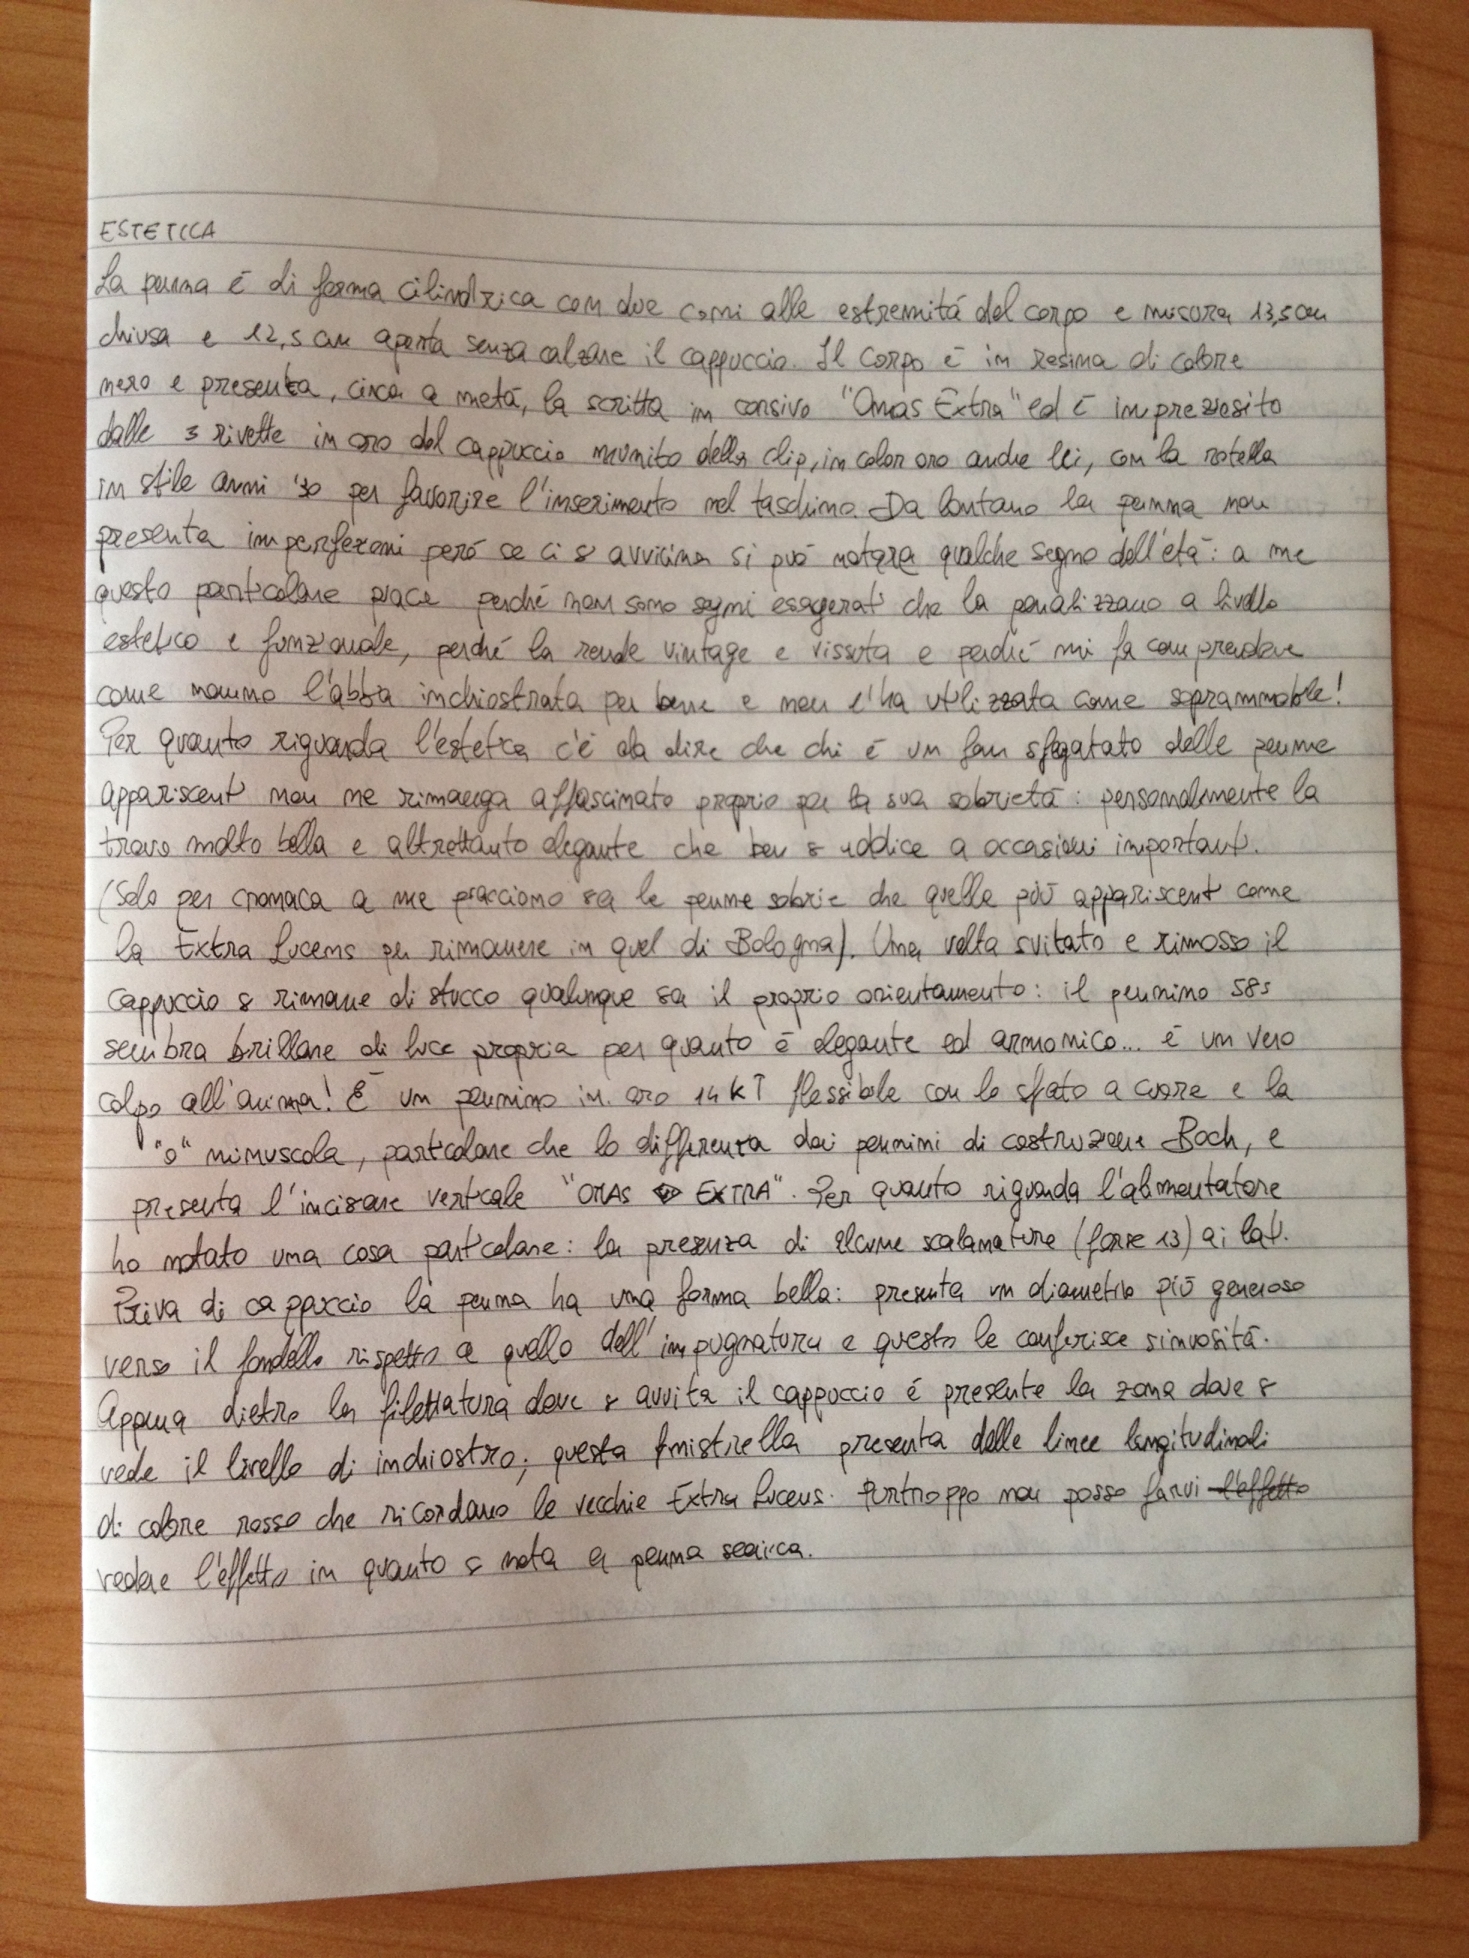 ESTETICA
La penna è di forma cilindrica con due coni alle estremità del corpo e misura 13,5 cm
chiusa e 12,5 cm aperta senza calzare il cappuccio. Il corpo è in resina di colore
nero e presenta, circa a metà, la scritta in corsivo "Omas Extra" ed è impreziosito
dalle 3 rivette in oro del cappuccio munito della clip, in color oro anche lei, con la rotella
in stile anni '30 per favorire l'inserimento nel taschino. Da lontano la penna non
presenta imperfezioni però se ci si avvicina si può notare qualche segno dell'età: a me
questo particolare piace perché non sono segni esagerati che la penalizzano a livello
estetico e funzionale, perché la rende vintage e vissuta e perché mi fa comprendere
come nonno l'abbia inchiostrata per bene e non l'ha utilizzata come soprammobile!
Per quanto riguarda l'estetica c'è da dire che chi è un fan sfegatato delle penne
appariscenti non ne rimanga affascinato proprio per la sua sobrietà: personalmente la
trovo molto bella e altrettanto elegante che ben si addice a occasioni importanti.
(Solo per cronaca a me piacciono sia le penne sobrie che quelle più appariscenti come
la Extra Lucens per rimanere in quel di Bologna). Una volta svitato e rimosso il
cappuccio si rimane di stucco qualunque sia il proprio orientamento: il pennino 585
sembra brillare di luce propria per quanto è elegante ed armonico... è un vero
colpo all'anima! È un pennino in oro 14 KT flessibile con lo sfiato a cuore e la
"o" minuscola, particolare che lo differenzia dai pennini di costruzione Boch, e
presenta l'incisione verticale "OMAS EXTRA". Per quanto riguarda l'alimentatore
ho notato una cosa particolare: la presenza di alcune scalanature (forse 13) ai lati.
Priva di cappuccio la penna ha una forma bella: presenta un diametro più generoso
verso il fondello rispetto a quello dell'impugnatura e questo le conferisce sinuosità.
Appena dietro la filettatura dove si avvita il cappuccio è presente la zona dove si
vede il livello di inchiostro; questa finistrella presenta delle linee longitudinali
di colore rosso che ricordano le vecchie Extra Lucens. Purtroppo non posso farvi l'effetto
vedere l'effetto in quanto si nota a penna scarica.